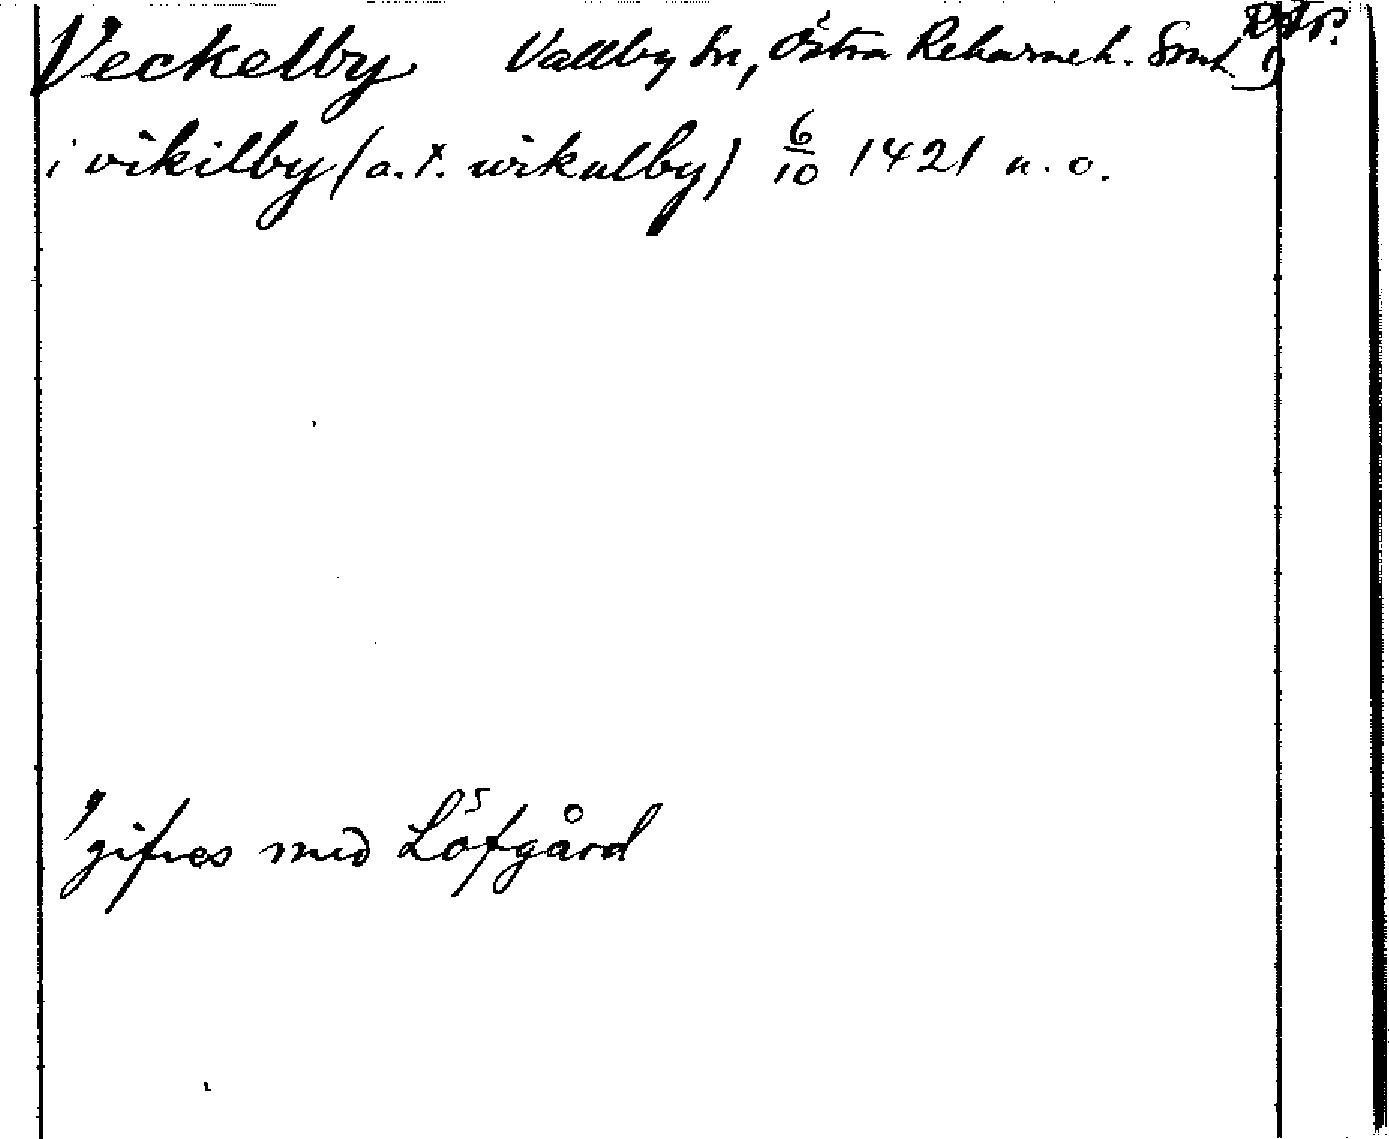 Veckelby Vallby sn, Östra Rekarne h. Srml
i vikilby (a. x. wikulby) 6/10 1421 n. o.
gifves med Löfgård